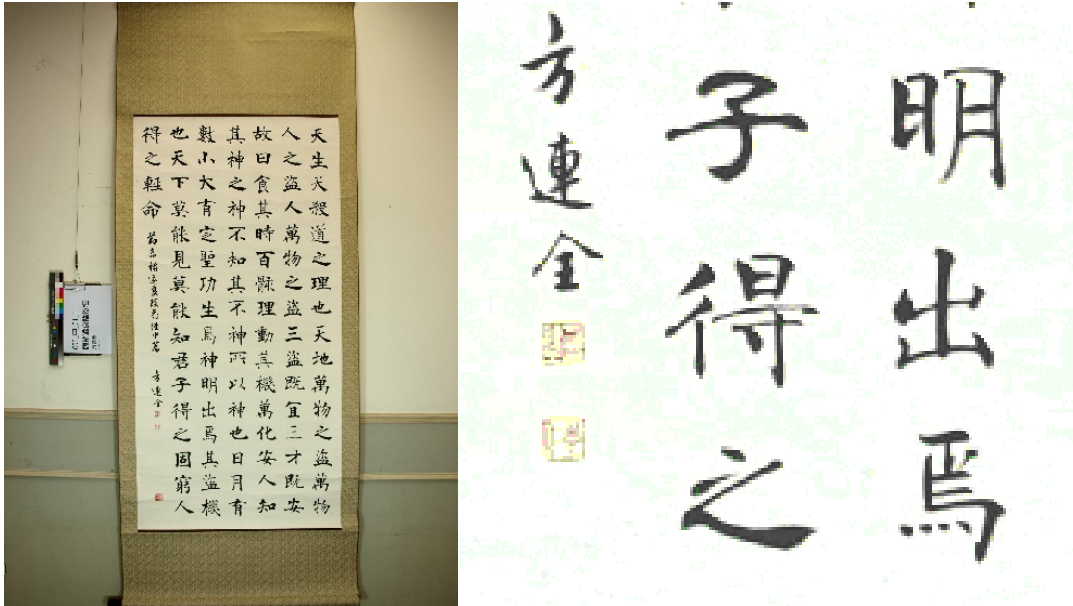 天生天殺道之理也天地萬物之盜萬物
人之盜人萬物之盜三盜既宜三才既安
故曰食其時百骸理動其機萬化安人知
其神之神不知其不神所以神也日月有
數小大有定聖功生焉神明出焉其盜機
也天下莫能見莫能知君子得之固窮人
得之輕命
方連全
明出焉
子得之
方連全